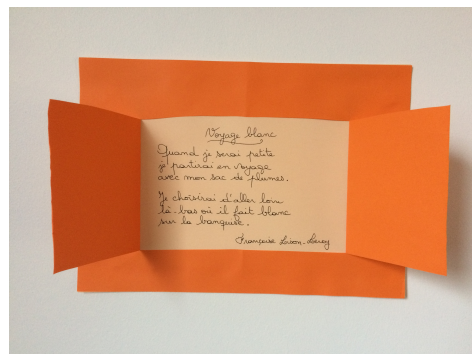 Voyage blanc
Quand je serai petite
je partirai en voyage
avec mon sac de plumes.
Je choisirai d'aller loin
là-bas où il fait blanc
sur la banquise.
Françoise Lison-Leroy